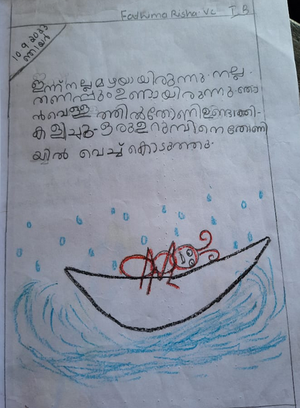 Fadhima Risha. VC I B
10.9.2023
ഞായർ
ഇന്ന് നല്ല മഴയായിരുന്നു. നല്ല
തണുപ്പും ഉണ്ടായിരുന്നു. ഞാ
ൻ വെള്ളത്തിൽ തോണി ഉണ്ടാക്കി
കളിച്ചു. ഒരു ഉറുമ്പിനെ തോണി
യിൽ വെച്ച് കൊടുത്തു.